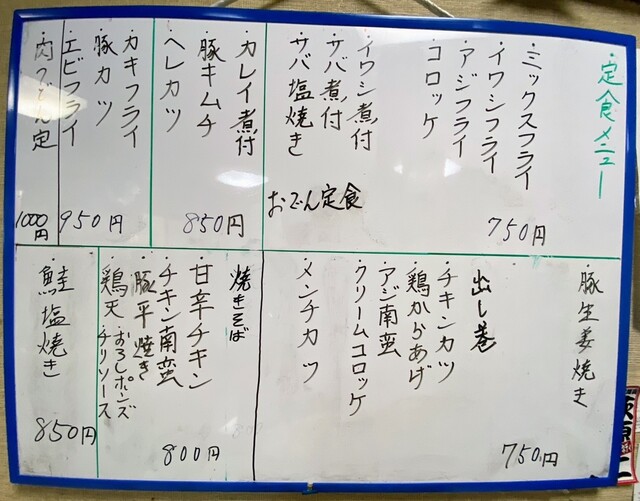 定食メニュー
・ミックスフライ
・イワシフライ
・アジフライ
・コロッケ
・イワシ煮付
・サバ煮付
・サバ塩焼き
おでん定食
750円
・カレイ煮付
・豚キムチ
・ヘレカツ
850円
・カキフライ
・豚カツ
・エビフライ
950円
・肉うどん定
1000円
・豚生姜焼き
・出し巻
・チキンカツ
・鶏からあげ
・アジ南蛮
・クリームコロッケ
・メンチカツ
750円
・焼きそば
・甘辛チキン
・チキン南蛮
・豚平焼き
・鶏天
・おろしポンズ
・チリソース
800円
・鮭塩焼き
850円